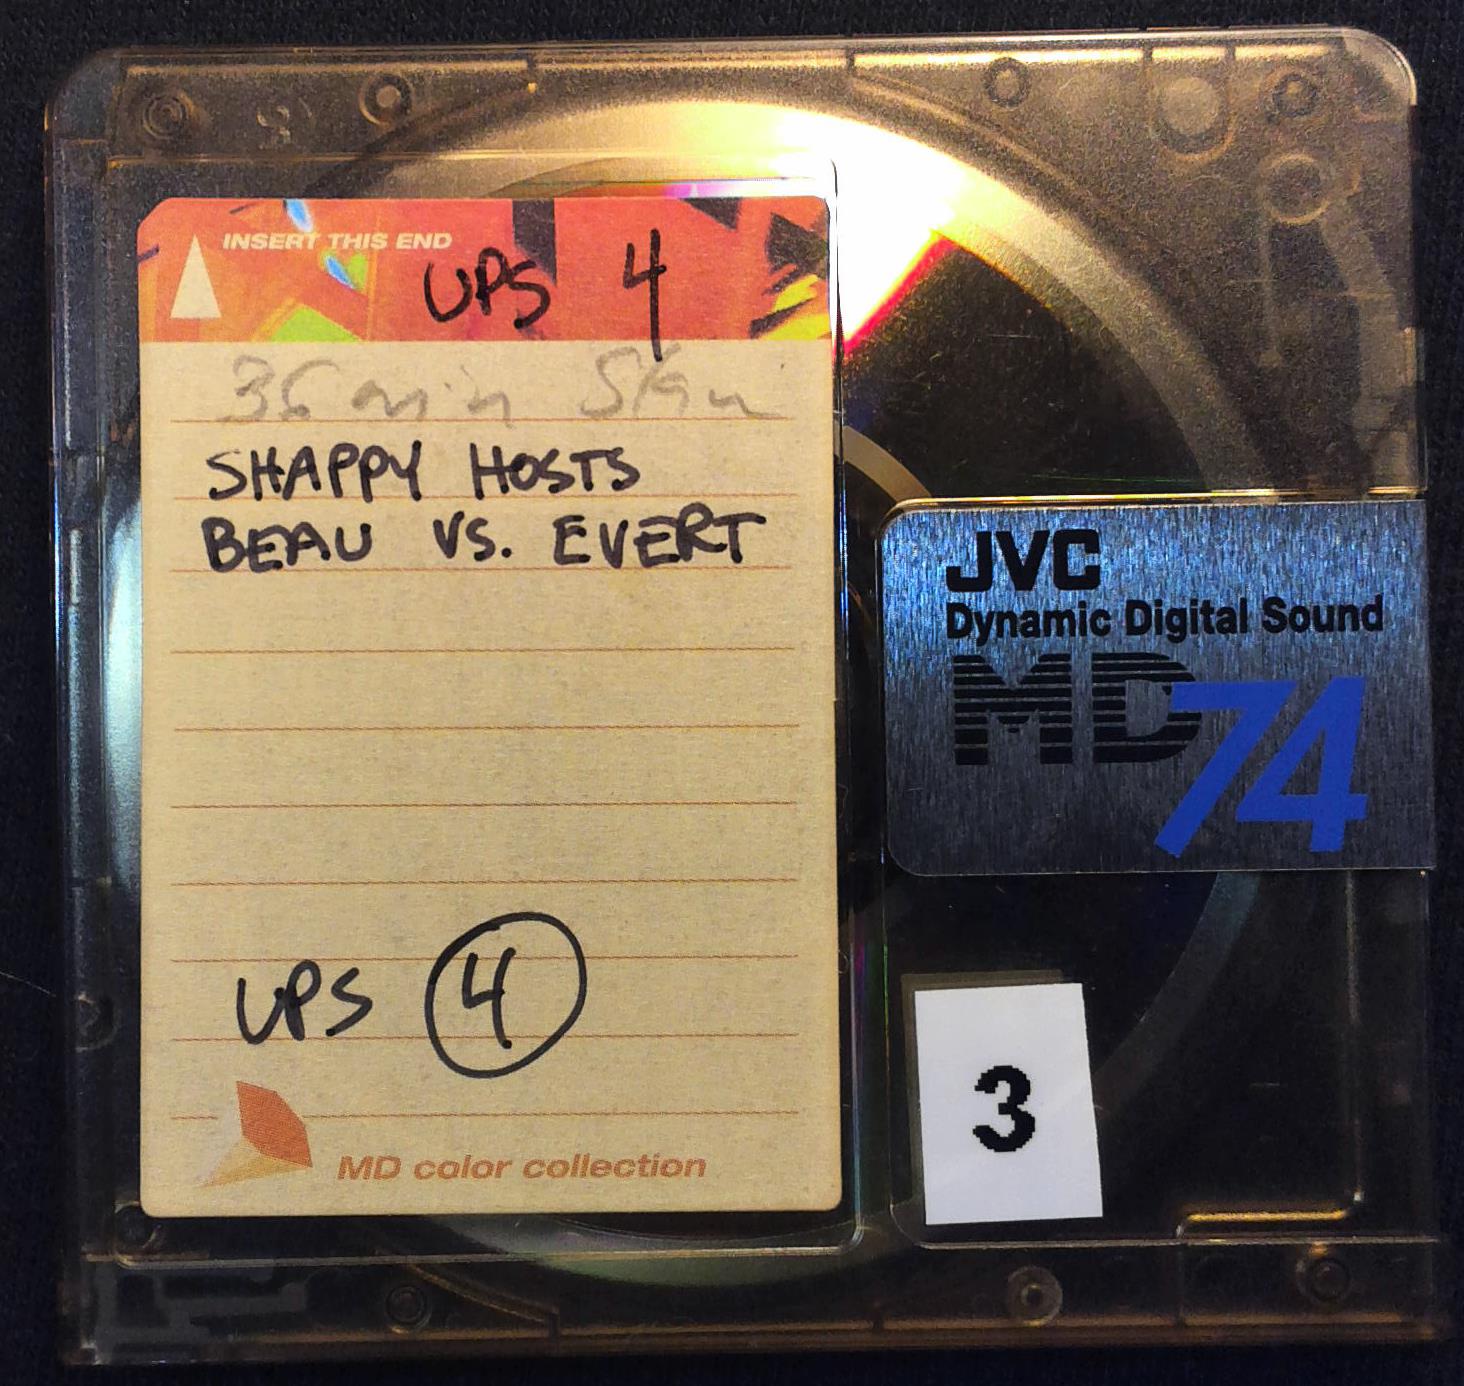 INSERT THIS END
UPS 4
min
SHAPPY HOSTS
BEAU VS. EVERT
UPS 4
MD color collection
JVC
Dynamic Digital Sound
MD74
3